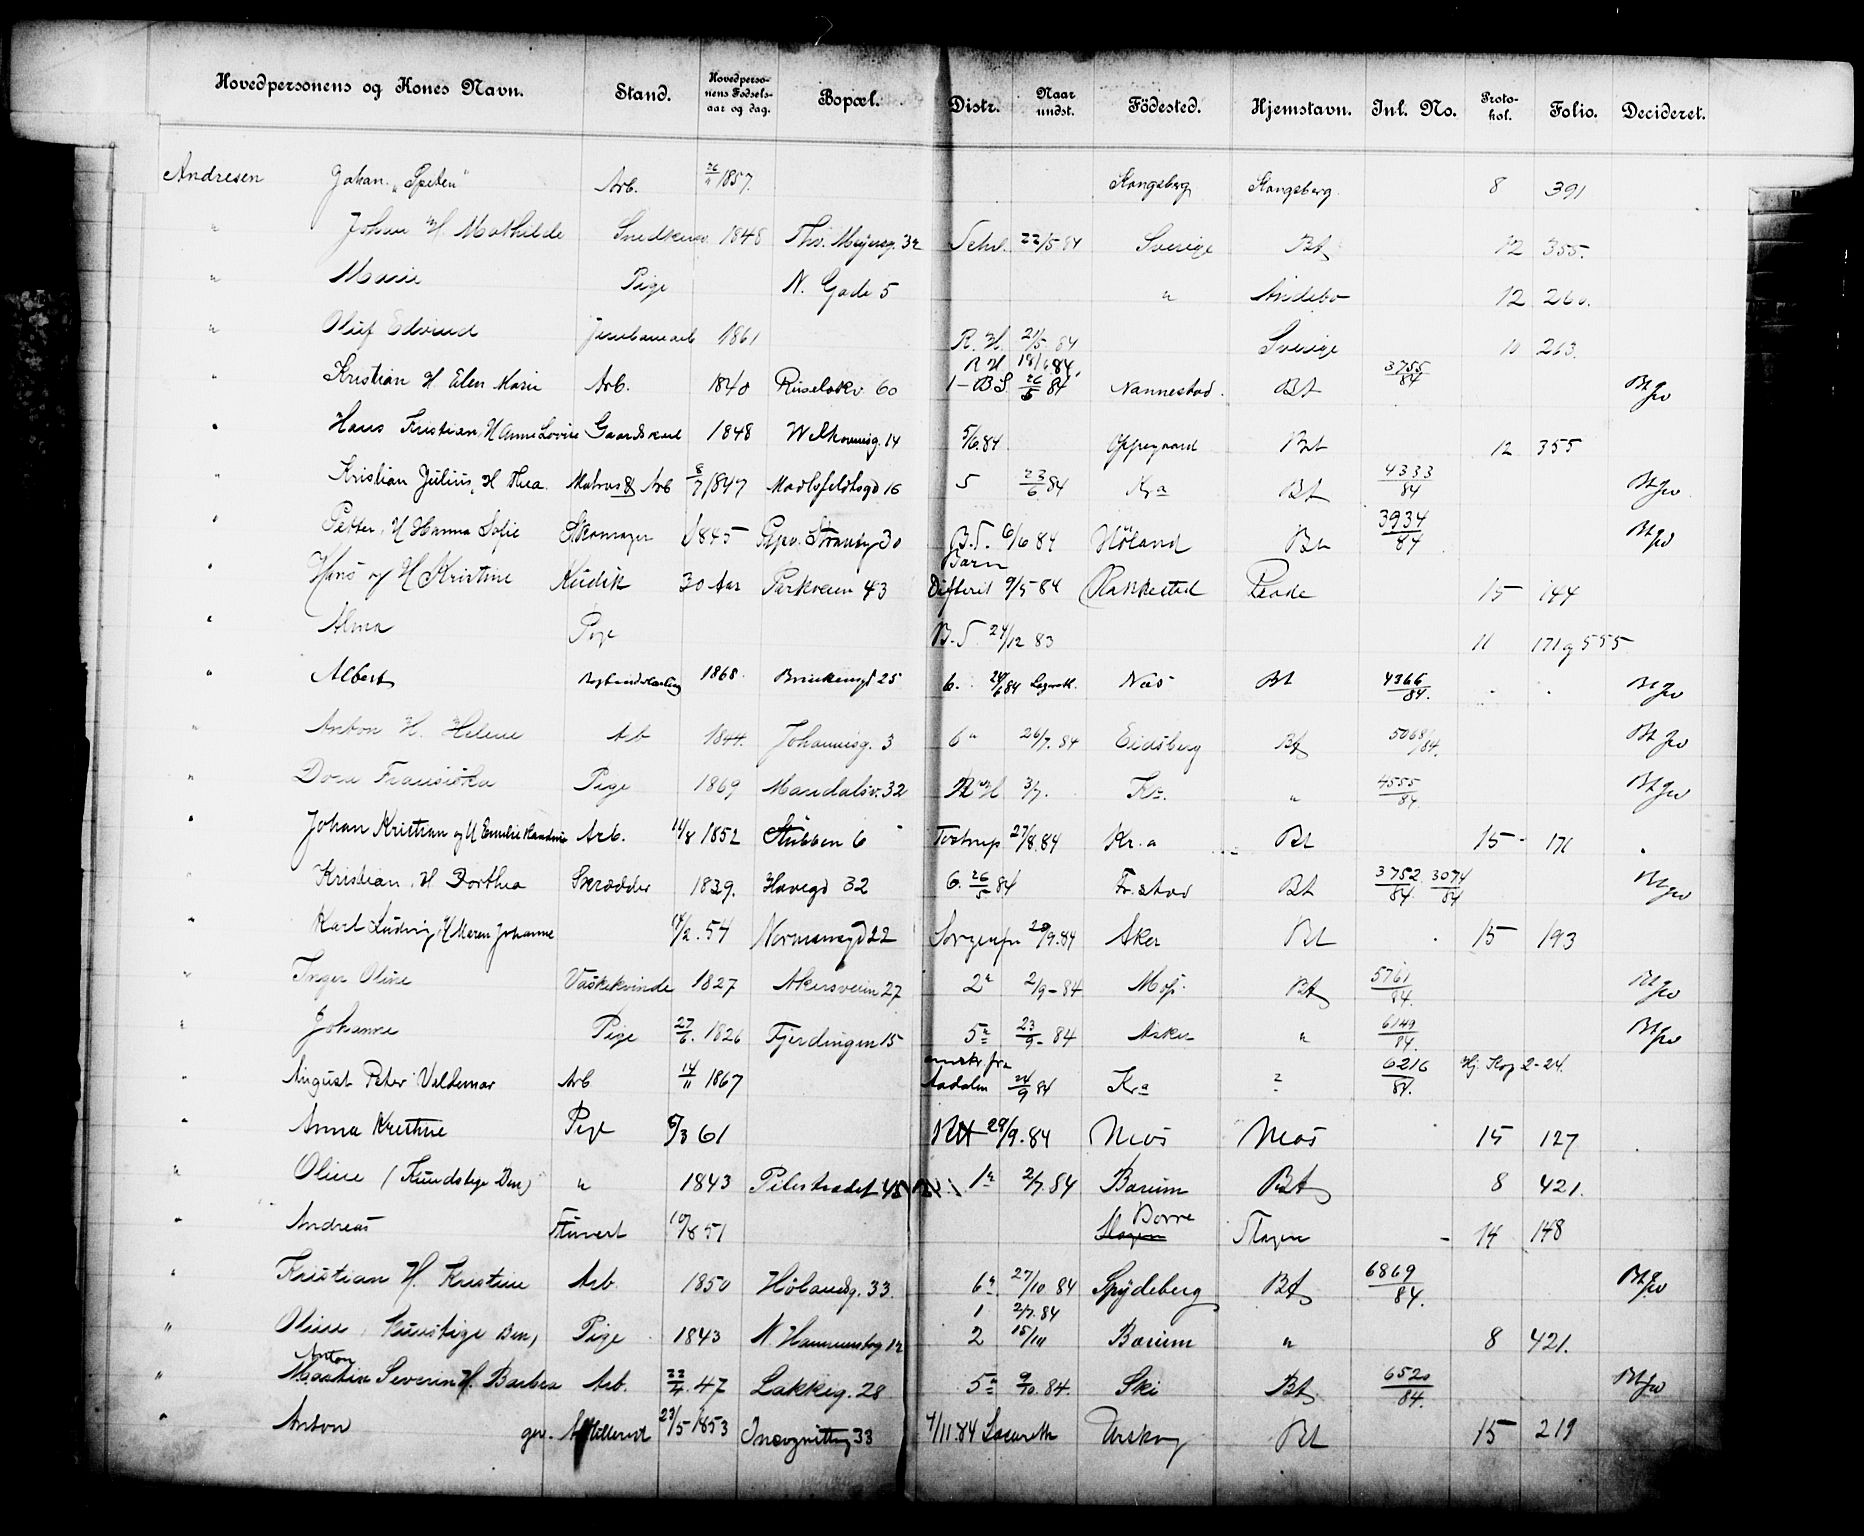 Hovedpersonens og Kones Navn. Stand. Hovedpersonens Fødselsaar og dag. Bopæl. Distr. Naar undst. Födested. Hjemstavn. Jnl. No. Protokol. Folio. Decideret.
Andresen Johan „Speten“ Arb. 1857. Kongsberg Kongsberg. 8 391
" Johan H. Mathilde Snedkersv. 1848 Thv. Meyersg. 32 22/5 84 Sverige Bt 12 355.
" Marie Pige N. Gade 5 " Andebo 12 260.
" Oluf Edvind Jernbanearb 1861 R. H. 21/5 84 Sverige 10 263.
" Kristian H Elen Marie Arb. 1840 Ruseløkv 60 R H 18/6 84. 1 - B S 26/5 84 Nannestad. Bt 3755/84
" Hans Kristian, H Anne Lovise Gaardskarl 1848 14 5/6 84 Oppegaard Bt 12 355
" Kristian Julius, H Thea. Matros & Arb 8/7 1847 16 5 23/6 84 Kra Bt 4333/84
" Petter, H Hanna Sofie Skomager 1845 30 B.S. 6/6 84 Höland Bt 3934/84
" Hans og H Kristine Kudsk 30 Aar Parkveien 43 Barn Difterit 9/5 84 Rakkestad Raade 15 144
" Alma Pige B. S. 24/12 83 11 171 og 555
" Albert 1868 25 6. 84 Næs Bt 4366/84.
" Anton H. Helene Arb 1844. Johannesg. 3 6" 26/7. 84 Eidsberg Bt 5068/84.
" Dora Fransiska Pige 1869 Maridalsv. 32 3/7. Kr. " 4555/84
" Johan Kristian og H Emilie Randine Arb. 14/8 1852 Stubben 6 27/8. 84 Kr.a Bt 15 171
Kristian, H Dorthea Skrædder 1839. Havegd 32 6. 26/5 84 Fr.stad Bt 3752/84 3074/84
" Karl Ludvig, H Maren Johanne 54 Normansgd 22 Sorgenfri 20/9. 84 Aker Bt 15 193
" Inger Oline Vaskekvinde 1827 Akersveien 27 2" 2/9 - 84 Moss. Bt 5761/84.
" Johanne Pige 27/6. 1826 Fjerdingen 15 5" 23/9 - 84 Asker " 6149/84.
" August Peter Valdemar Arb 14/11 1867 Aadalen 24/9 84 Kra ? 6216/84. 2-24.
" Anna Kristine Pige 6/3 61 RH 29/9. 84 Moss Moss 15 127
" Oline (Kunstige Ben) " 1843 Pilestrædet 45 1" 2/7. 84 Bærum Bt 8 421.
" Andreas Stuvert 10/8 51 Borre Slagen Slagen - 14 148
" Kristian H. Kristine Arb. 1850 Hölandsg. 33. 6" 27/10 84 Spydeberg Bt 6869/84.
" Oline, Kunstige Ben) Pige 1843 N. 12 1 2/7. 84 2 15/10 Bærum " 8 421.
" Anton Martin Severin H. Barbra Arb. 22/4. 47 Lakkeg. 28 5" 9/10. 84. Ski Bt 6520/84.
" Anton gev. Artillerist 23/5 1853 Incognittog 33 4/11. 84 Lasareth Urskog Bt 15 219